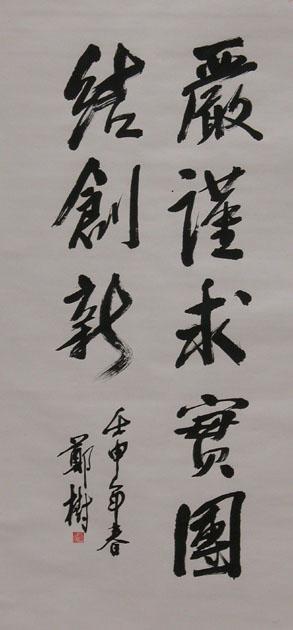 嚴謹求實團
結創新
壬申年春
鄭樹